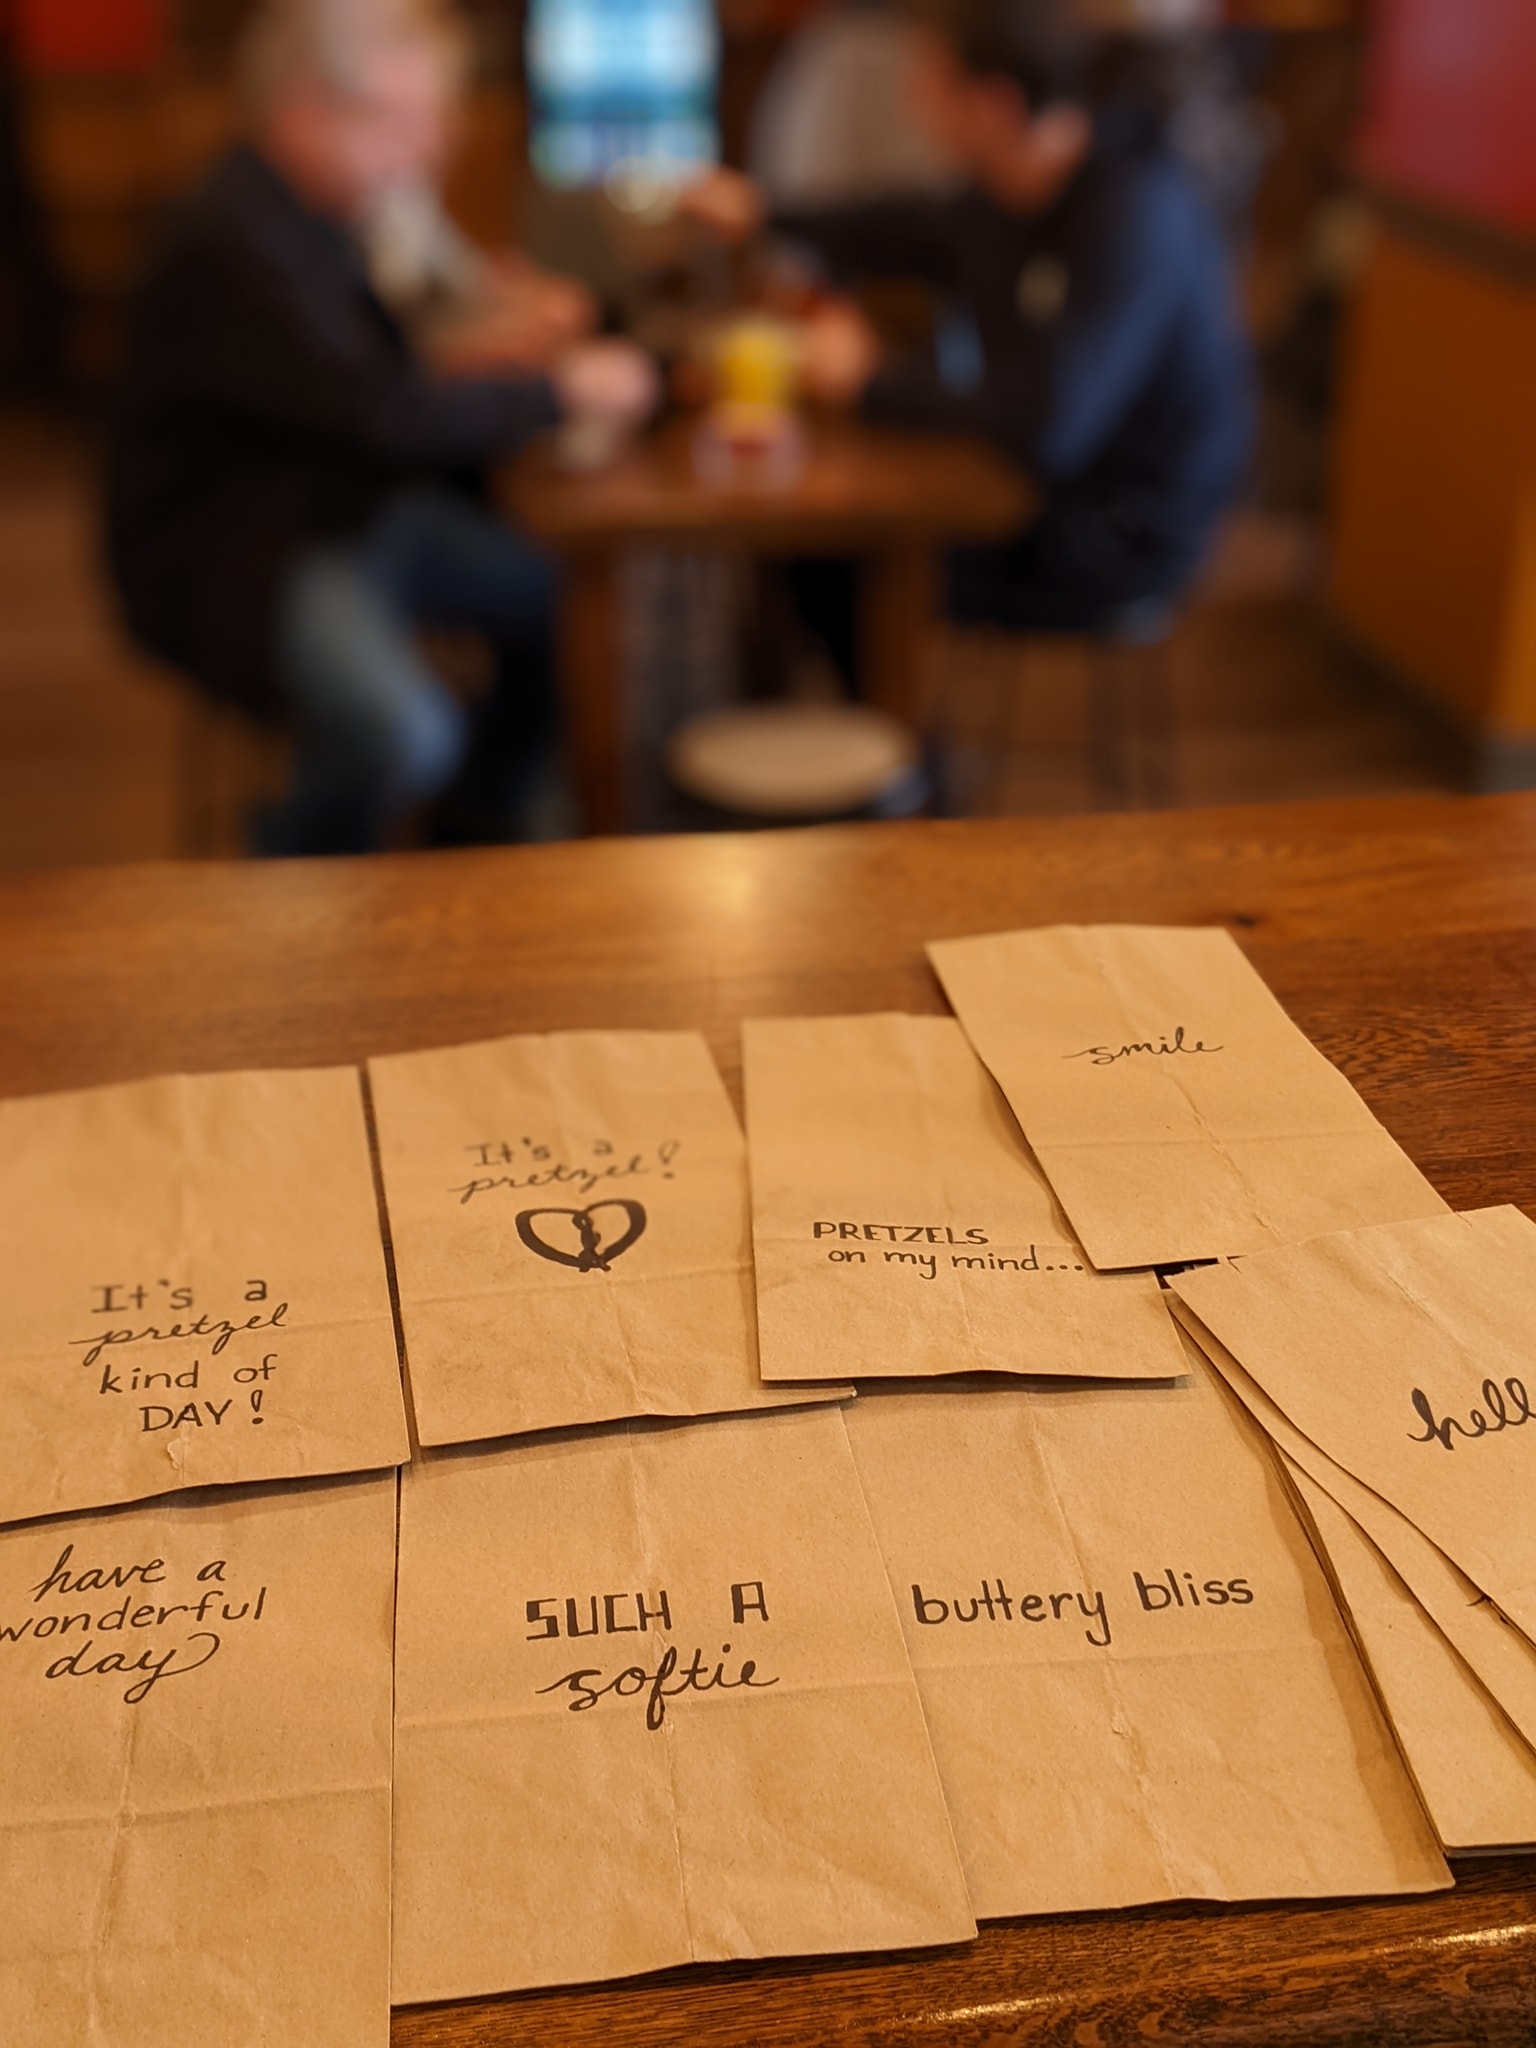 It's a
pretzel
kind of
DAY!
It's a
pretzel!
PRETZELS
on my mind...
smile
hell
have a
wonderful
day
SUCH A
softie
buttery bliss